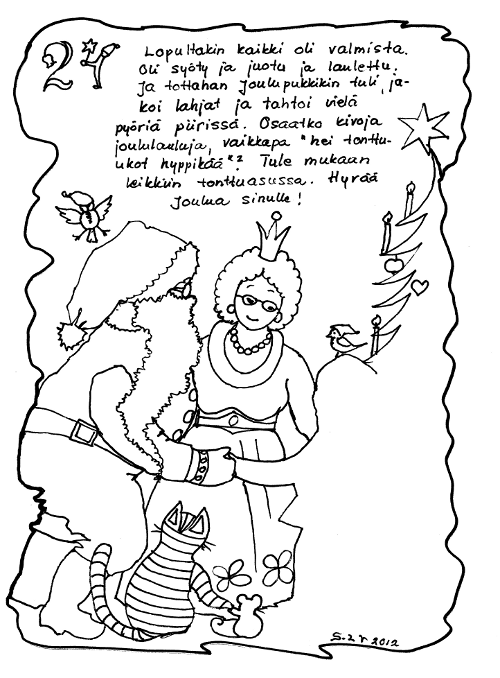 24
Lopultakin kaikki oli valmista.
Oli syöty ja juotu ja laulettu.
Ja tottahan Joulupukkikin tuli, ja-
koi lahjat ja tahtoi vielä
pyöriä piirissä. Osaatko kivoja
joululauluja, vaikkapa "hei tonttu-
ukot hyppikää"? Tule mukaan
leikkiin tonttuasussa. Hyvää
Joulua sinulle!
2012